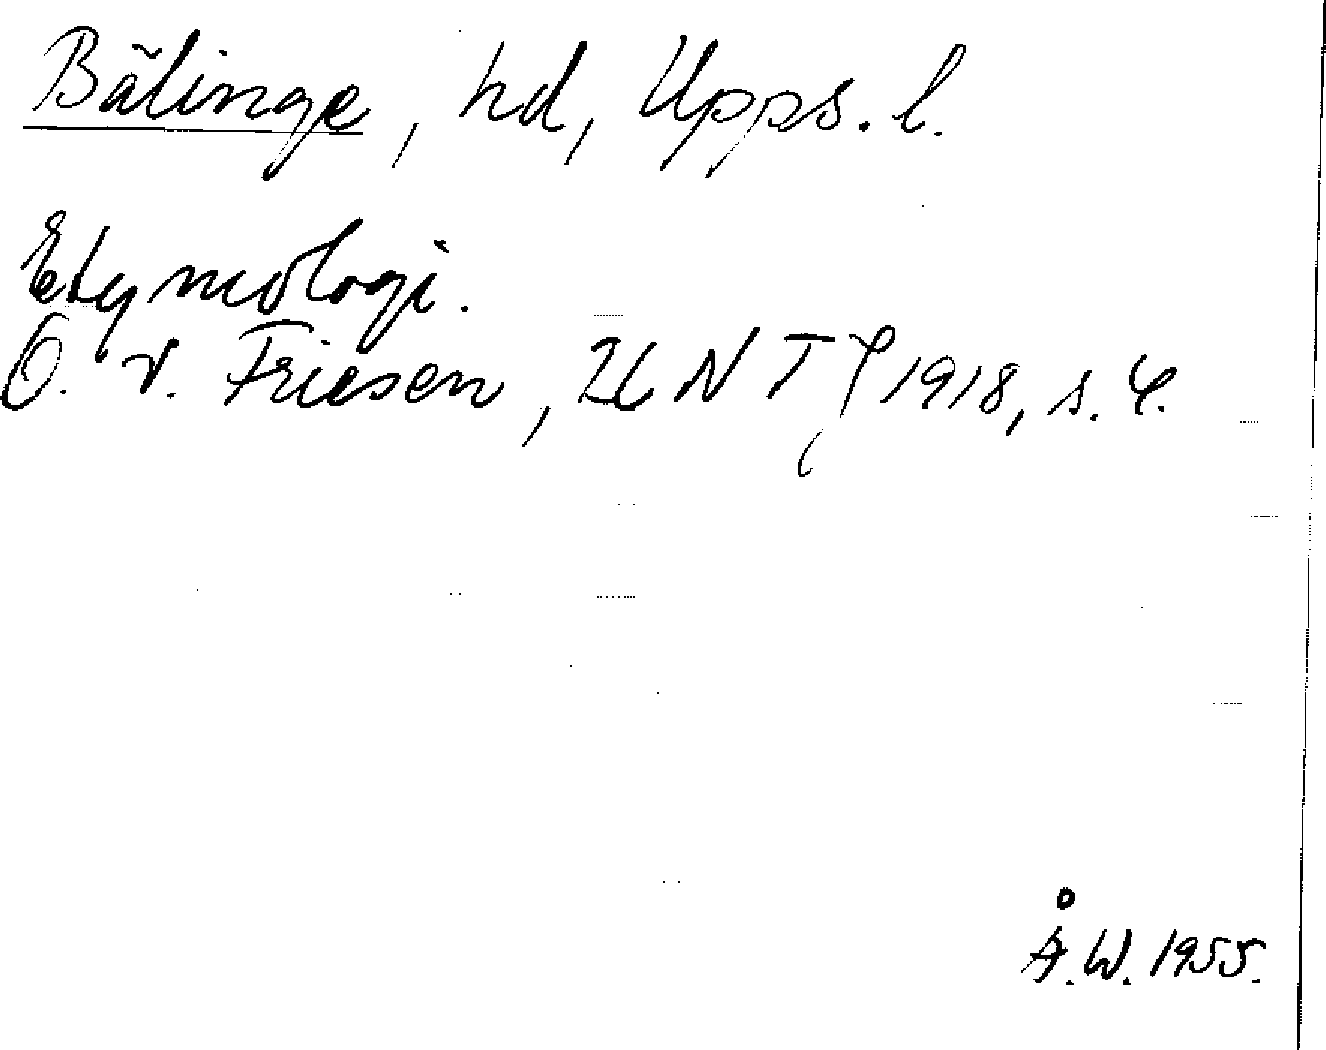 Bälinge, hd, Upps. l.
Etymologi.
O. v. Friesen, i UNT 1918, s. 4.
Å.W. 1955.